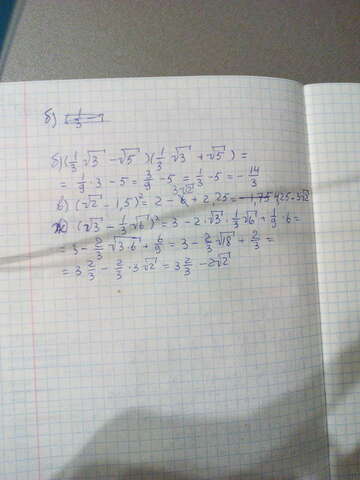 б)
б) (1/3 √3 - √5)(1/3 √3 + √5) =
= 1/9 · 3 - 5 = 3/9 - 5 = 1/3 - 5 = - 14/3
в) (√2 - 1,5)² = 2 - 3√2 + 2,25 = 4,25 - 3√2
(√3 - 1/3 √6)² = 3 - 2 · √3 · 1/3 √6 + 1/9 · 6 =
= 3 - 2/3 √3·6 + 6/9 = 3 - 2/3 √18 + 2/3 =
= 3 2/3 - 2/3 · 3√2 = 3 2/3 - 2√2